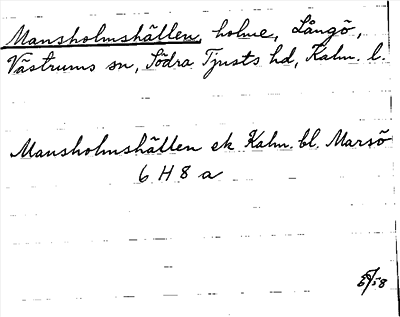 Mansholmshällen, holme, Långö,
Västrums sn, Södra Tjusts hd, Kalm. l.
Mansholmshällen ek Kalm. bl. Marsö
6 H 8 a